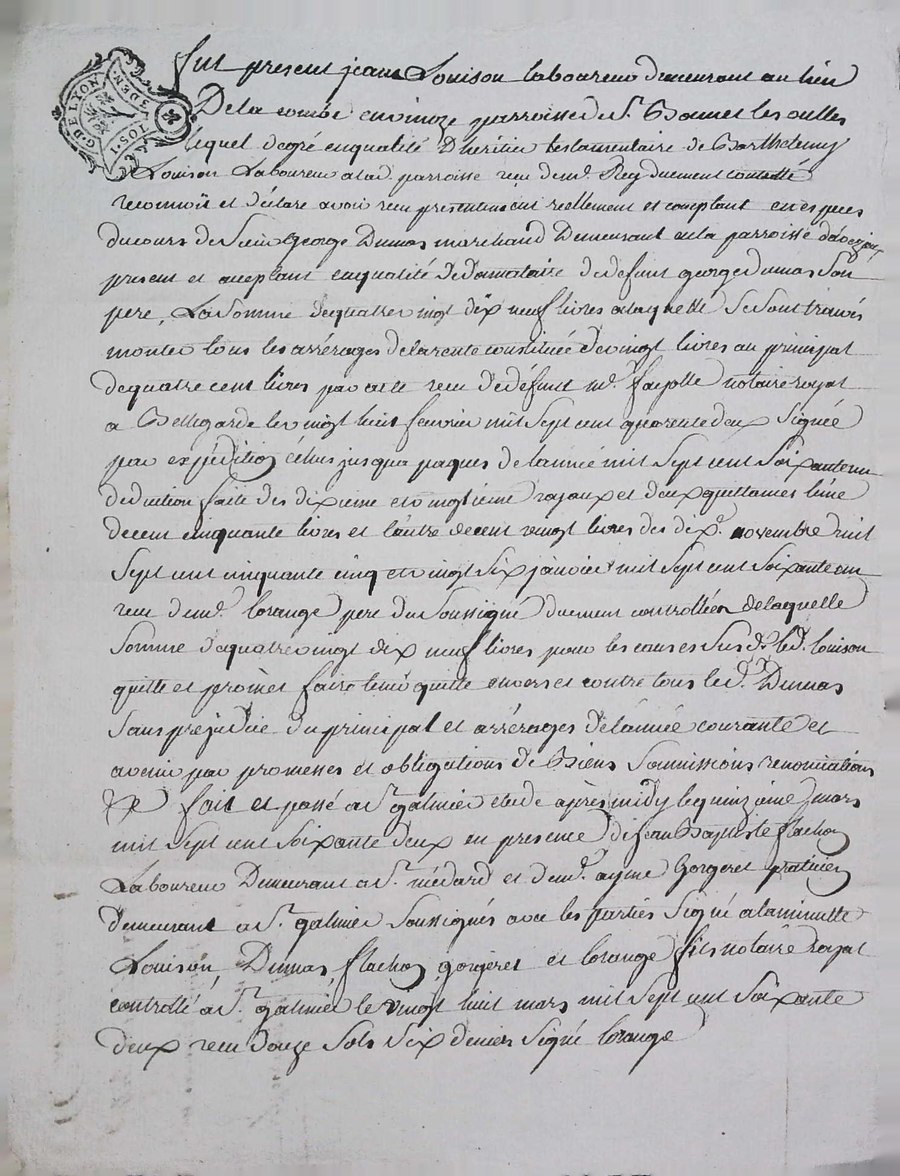 G. DE LYON
I. SOL. 3 DEN.
fut present jean Louison laboureur demeurant au lieu
De la combe en vinoze parroisse de St. Bonnet les oulles
lequel de gré en qualité D'héritier testamentaire de Barthelemy
Louison Laboureur a lad. parroisse reçu de me. Rey duement controllé
reconnoit et déclare avoir reçu présentement reellement et comptant en especes
du cours de Sieur George Dumas marchand Demeurant en la parroisse d'aveizieu
present et acceptant en qualité de donnataire de deffunt george dumas son
pere, La somme de quatre vingt dix neuf livres a laquelle se sont trouvés
monter tous les arrérages de la rente constituée de vingt livres au principal
de quatre cent livres par acte reçu de deffunt me. fayolle notaire royal
a Bellegarde le vingt huit fevrier mil sept cent quarente deux signée
par expédition échus jusqua paques de lannée mil sept cent soixante un
deduction faite des dixieme et vingtieme royaux et deux quittances lune
de cent cinquante livres et l'autre de cent vingt livres des dix novembre mil
sept cent cinquante cinq et vingt six janvier mil sept cent soixante un
reçu de me. lorange pere du soussigné duement controllées de laquelle
somme de quatre vingt dix neuf livres pour les causes sus d. le d. louison
quitte et promet faire tenir quitte envers et contre tous le d. Sr. Dumas
sans prejudice du principal et arrérages de lannée courante et
avenir par promesses et obligations de Biens soumissions renonciations
& fait et passé a St. galmier etude après midy le quinzième mars
mil sept cent soixante deux en presence de jean Baptiste flachon
Laboureur Demeurant a St. médard et de me. ayme Gorgeret praticien
demeurant a St. galmier soussignés avec les parties signé a la minutte
Louison, Dumas, flachon, gorgeret et lorange fils notaire royal
controllé a St. galmier le vingt huit mars mil sept cent soixante
deux reçu douze sols six deniers signé lorange